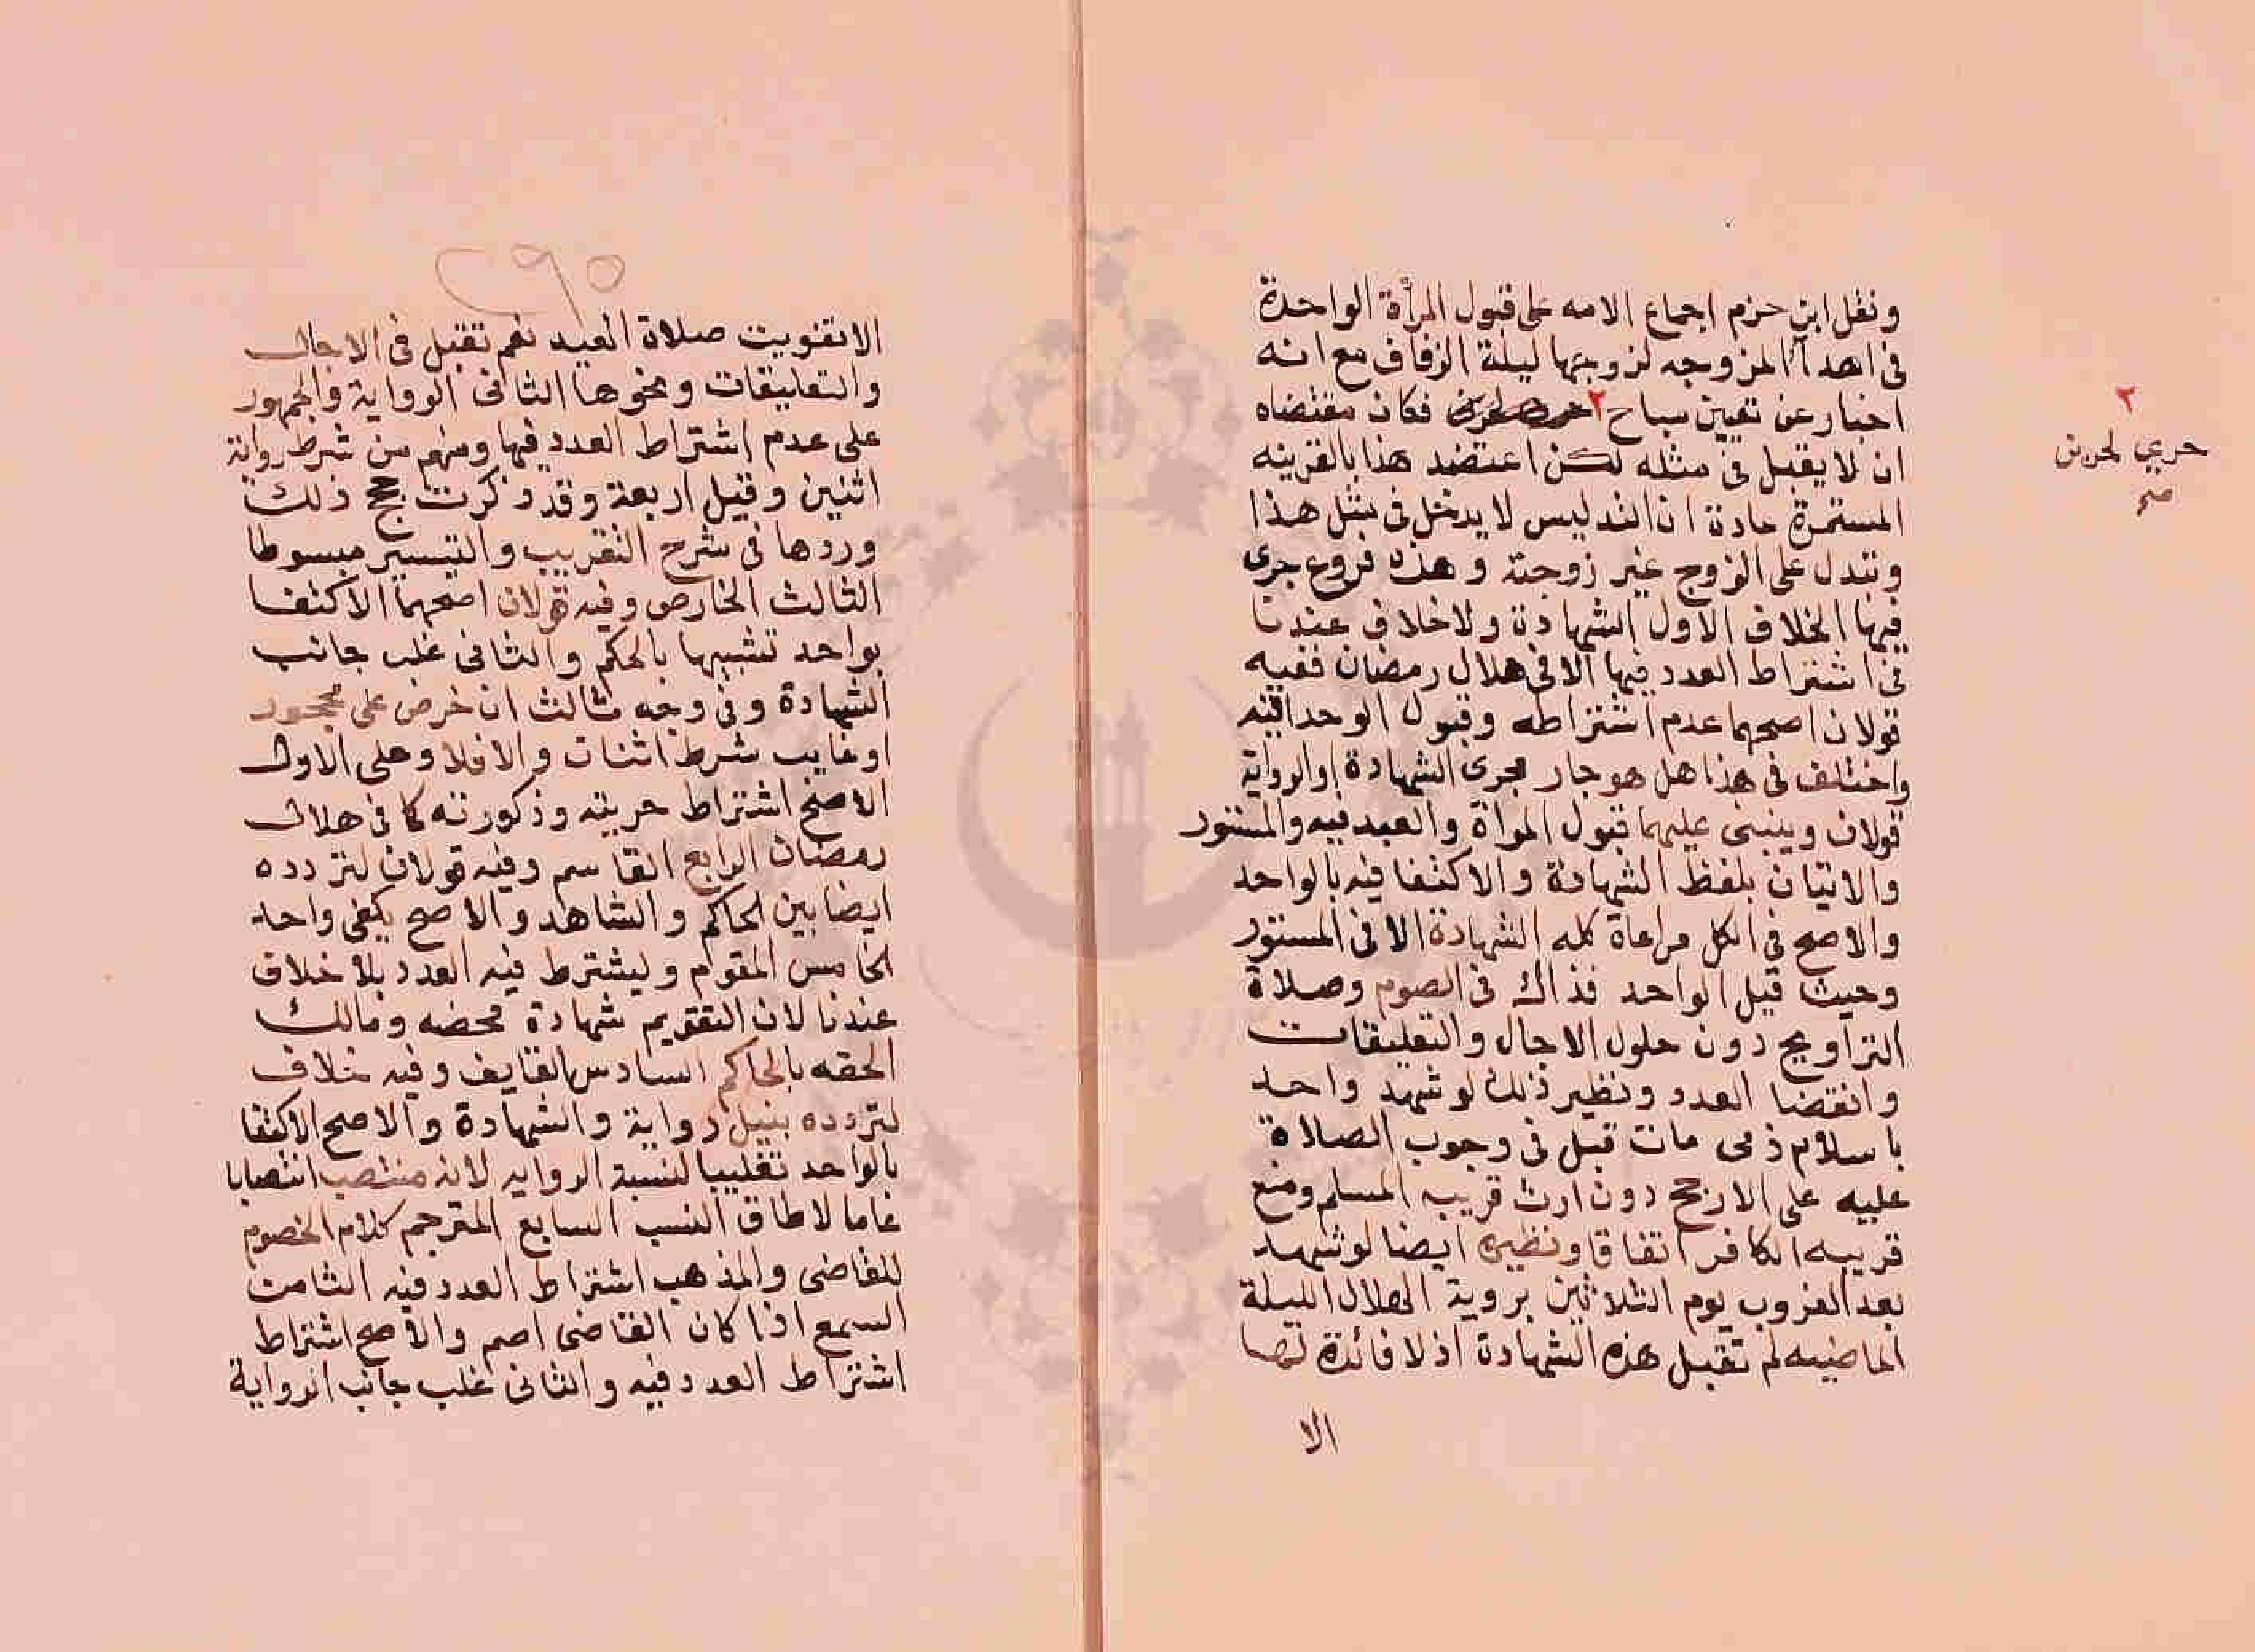 ونقل ابن حزم اجماع الامه على قبول المرأة الواحدة
فى اهداء المزوجه لزوجها ليلة الزفاف مع انه
اخبار عن تعيين مباح ٢ فكان مقتضاه
ان لا يقبل فى مثله لكن اعتضد هذا بالقرينه
المستمرة عادة ان التدليس لا يدخل فى مثل هذا
وتبدل على الزوج غير زوجته وهذه فروع جرى
فيها الخلاف الاول الشهادة ولا خلاف عندنا
فى اشتراط العدد فيها الا فى هلال رمضان ففيه
قولان اصحهما عدم اشتراطه وقبول الوحد فيه
واختلف فى هذا هل هو جار مجرى الشهادة او الرواية
قولان وينبنى عليهما قبول المراة والعبد فيه والمستور
والاتيان بلفظ الشهادة والاكتفا فيه بالواحد
والاصح فى الكل مراعاة كله الشهادة الا فى المستور
وحيث قبل الواحد فذاك فى الصوم وصلاة
التراويح دون حلول الاجال والتعليقات
وانقضا العدد ونظير ذلك لو شهد واحد
باسلام ذمى مات قبل فى وجوب الصلاة
عليه على الارجح دون ارث قريبه المسلم ومنع
قريبه الكافر اتفاقا ونظيره ايضا لو شهد
بعد الغروب يوم الثلاثين بروية الهلال الليلة
الماضيه لم تقبل هذه الشهادة اذ لا فائدة لها
الا
٢
حربى
صح
٢٩٥
الا تفويت صلاة العيد نعم تقبل فى الاجال
والتعليقات ونحوها الثانى الرواية والجمهور
على عدم اشتراط العدد فيها ومنهم من شرط رواية
اثنين وقيل اربعة وقد ذكرت حجج ذلك
وردها فى شرح التقريب والتيسير مبسوطا
الثالث الخارص وفيه قولان اصحهما الاكتفا
بواحد تشبيها بالحكم والثانى غلب جانب
الشهادة وفى وجه ثالث ان خرص على محجور
او غايب شرط اثنان والا فلا وعلى الاول
الاصح اشتراط حريته وذكورته كما فى هلال
رمضان الرابع القاسم وفيه قولان لتردده
ايضا بين الحاكم والشاهد والاصح يكفى واحد
الخامس المقوم وليشترط فيه العدد بلا خلاف
عندنا لان التقويم شهادة محضه ومالك
الحقه بالحاكم السادس القايف وفيه خلاف
لتردده بين الرواية والشهادة والاصح الاكتفا
بالواحد تغليبا لنسبة الروايه لانه منتصب انتصابا
عاما لالحاق النسب السابع المترجم كلام الخصوم
للقاضى والمذهب اشتراط العدد فيه الثامن
السمع اذا كان القاضى اصم والاصح اشتراط
اشتراط العدد فيه والثانى غلب جانب الرواية